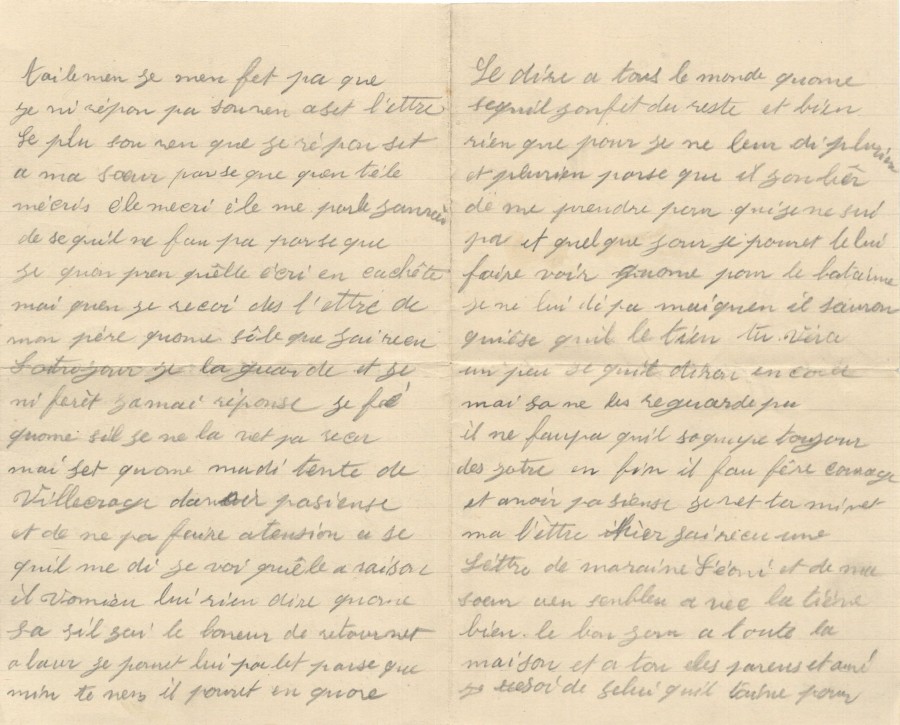 tailemen se men fet pa que
je ni répon pa souven a set l'ettre
le plu souven que je répon set
a ma sœur parse que quen tèle
mécris èle mecri èle me parle jamais
de se quil ne fau pa parse que
je quonpren quêlle écri en cachête
mai quen je recoi des l'ettre de
mon père quome sôle que jai recu
lotrejour je la guarde et je
ni ferêt jamai réponse je fé
quome sil je ne la vet pa recu
mai set quome ma di tente de
Villecroze davoir pasiense
et de ne pa faire atension a se
quil me di je voi quêle a raison
il vomieu lui rien dire quome
sa sil jai le boneur de retournet
alaur je pouret lui parlet parse que
mintenen il pouret en quore
Le dire a tous le monde quome
sequil zonfet du reste et bien
rien que pour se ne leur di plurien
et plurien parse que il zon lêr
de me prendre pour qui je ne sui
pa et quelque jour je pouret le lui
faire voir quome pour le bataime
je ne lui di pa mai quen il sauron
qui ése quil le tien tu vera
un peu se quil diron encore
mai sa ne les reguarde pa
il ne faupa quil soqupe toujour
des jotre en fin il fau fêre courage
et avoir pasiense jeret ta minet
ma l'ettre ihier jai recu une
Lettre de maraine Léoni et de ma
sœur uen senbleu avec la tiène
bien le bonjour a toute la
maison et a tou eles parens et ami
resoi de selui quil taime pour